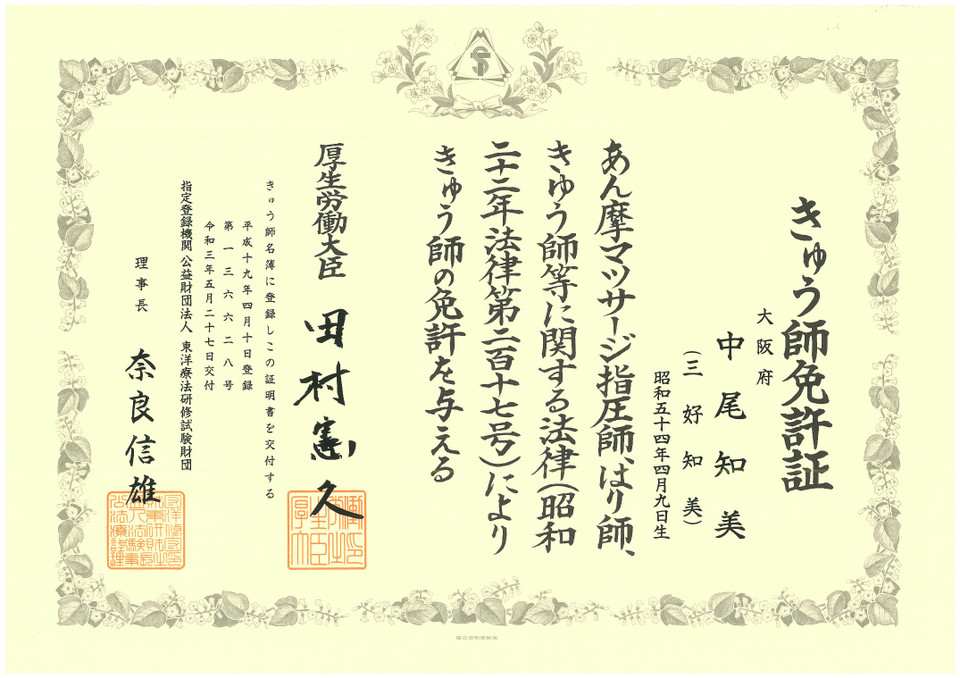 きゅう師免許証
大阪府
中尾知美
（三好知美）
昭和五十四年四月九日生
あん摩マツサージ指圧師、はり師、
きゆう師等に関する法律（昭和
二十二年法律第二百十七号）により
きゅう師の免許を与える
厚生労働大臣 田村憲久
きゅう師名簿に登録しこの証明書を交付する
平成十九年四月十日登録
第一三六六二八号
令和三年五月二十七日交付
指定登録機関 公益財団法人 東洋療法研修試験財団
理事長 奈良信雄